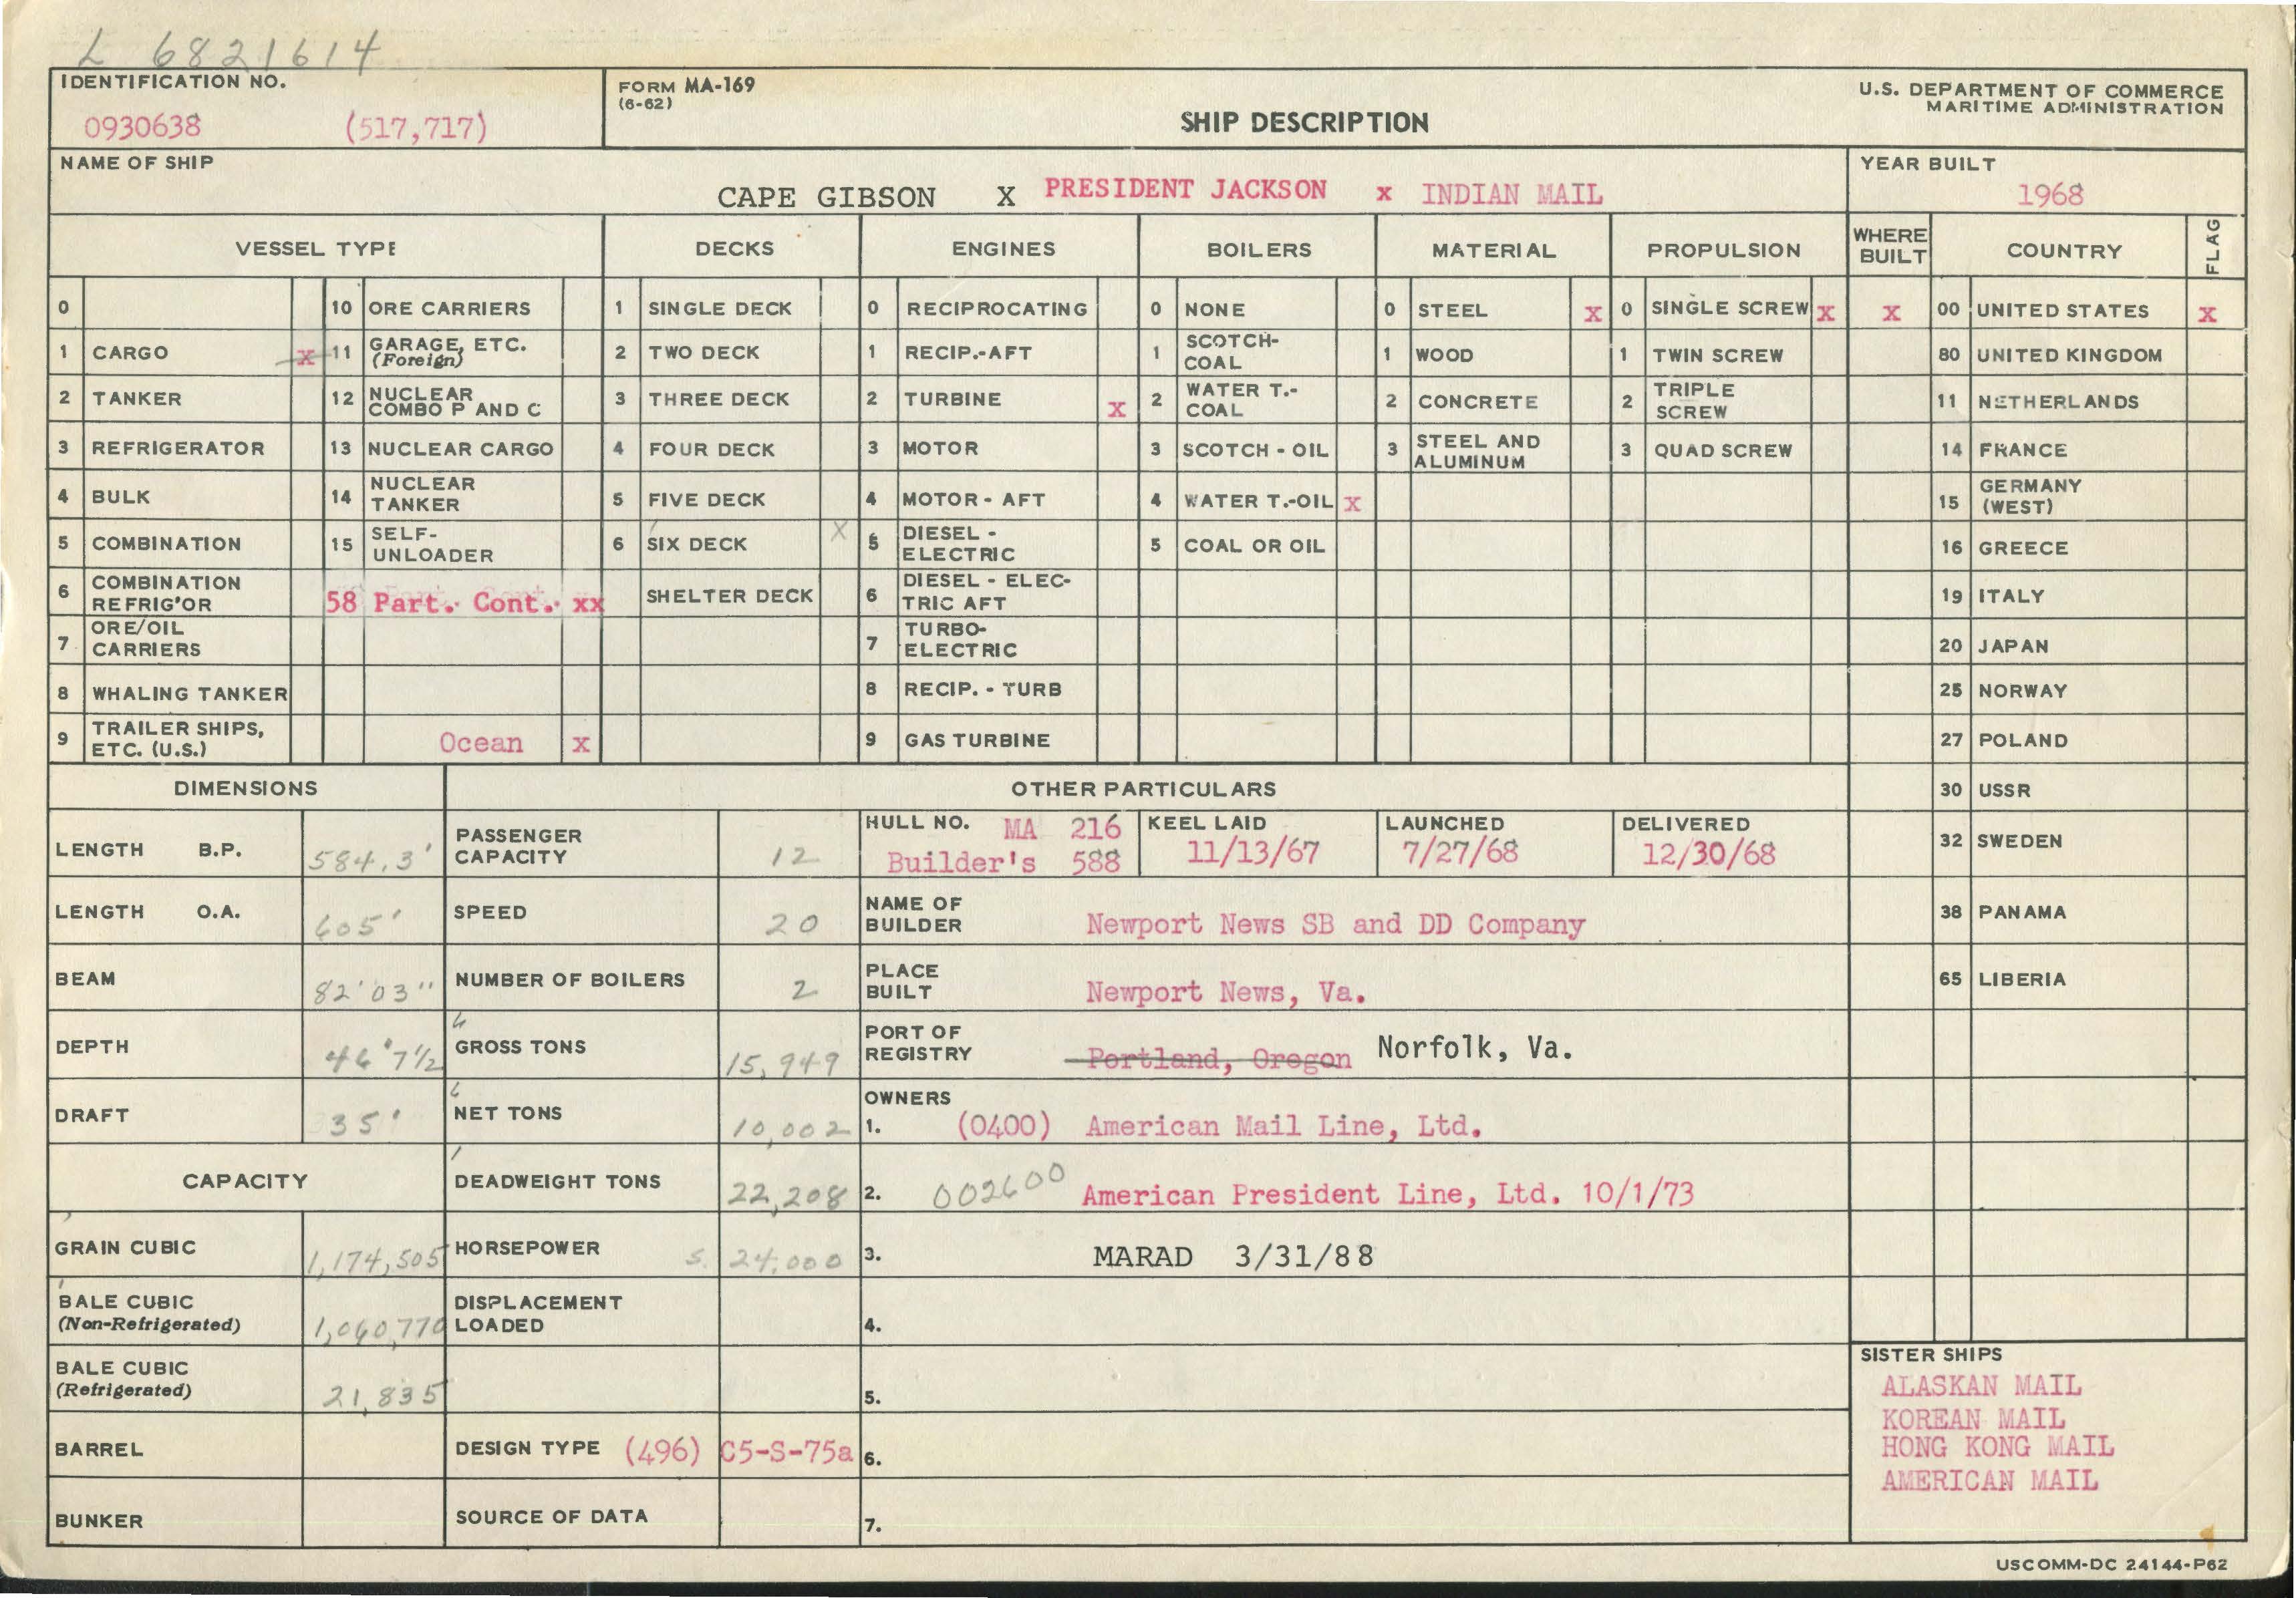 L 6821614
IDENTIFICATION NO.
0930638 (517,717)
FORM MA-169
(6-62)
SHIP DESCRIPTION
U.S. DEPARTMENT OF COMMERCE
MARITIME ADMINISTRATION
NAME OF SHIP
CAPE GIBSON X PRESIDENT JACKSON x INDIAN MAIL
YEAR BUILT
1968
VESSEL TYPE DECKS ENGINES BOILERS MATERIAL PROPULSION WHERE BUILT COUNTRY FLAG
0 10 ORE CARRIERS 1 SINGLE DECK 0 RECIPROCATING 0 NONE 0 STEEL x 0 SINGLE SCREW x x 00 UNITED STATES x
1 CARGO x 11 GARAGE, ETC. (Foreign) 2 TWO DECK 1 RECIP.-AFT 1 SCOTCH-COAL 1 WOOD 1 TWIN SCREW 80 UNITED KINGDOM
2 TANKER 12 NUCLEAR COMBO P AND C 3 THREE DECK 2 TURBINE x 2 WATER T.-COAL 2 CONCRETE 2 TRIPLE SCREW 11 NETHERLANDS
3 REFRIGERATOR 13 NUCLEAR CARGO 4 FOUR DECK 3 MOTOR 3 SCOTCH - OIL 3 STEEL AND ALUMINUM 3 QUAD SCREW 14 FRANCE
4 BULK 14 NUCLEAR TANKER 5 FIVE DECK 4 MOTOR - AFT 4 WATER T.-OIL x 15 GERMANY (WEST)
5 COMBINATION 15 SELF-UNLOADER 6 SIX DECK X 5 DIESEL - ELECTRIC 5 COAL OR OIL 16 GREECE
6 COMBINATION REFRIG'OR 58 Part. Cont. xx SHELTER DECK 6 DIESEL - ELECTRIC AFT 19 ITALY
7 ORE/OIL CARRIERS 7 TURBO-ELECTRIC 20 JAPAN
8 WHALING TANKER 8 RECIP. - TURB 25 NORWAY
9 TRAILER SHIPS, ETC. (U.S.) Ocean x 9 GAS TURBINE 27 POLAND
30 USSR
32 SWEDEN
38 PANAMA
65 LIBERIA
DIMENSIONS
LENGTH B.P. 584.3'
LENGTH O.A. 605'
BEAM 82'03"
DEPTH 46'7½
DRAFT 35'
CAPACITY
GRAIN CUBIC 1,174,505
BALE CUBIC
(Non-Refrigerated) 1,060,770
BALE CUBIC
(Refrigerated) 21,835
BARREL
BUNKER
OTHER PARTICULARS
PASSENGER CAPACITY 12
SPEED 20
NUMBER OF BOILERS 2
GROSS TONS 15,949
NET TONS 10,002
DEADWEIGHT TONS 22,208
HORSEPOWER S. 24,000
DISPLACEMENT LOADED
DESIGN TYPE (496) C5-S-75a
SOURCE OF DATA
HULL NO. MA 216
Builder's 588
KEEL LAID
11/13/67
LAUNCHED
7/27/68
DELIVERED
12/30/68
NAME OF BUILDER Newport News SB and DD Company
PLACE BUILT Newport News, Va.
PORT OF REGISTRY Portland, Oregon Norfolk, Va.
OWNERS
1. (0400) American Mail Line, Ltd.
2. 002600 American President Line, Ltd. 10/1/73
3. MARAD 3/31/88
4.
5.
6.
7.
SISTER SHIPS
ALASKAN MAIL
KOREAN MAIL
HONG KONG MAIL
AMERICAN MAIL
USCOMM-DC 24144-P62